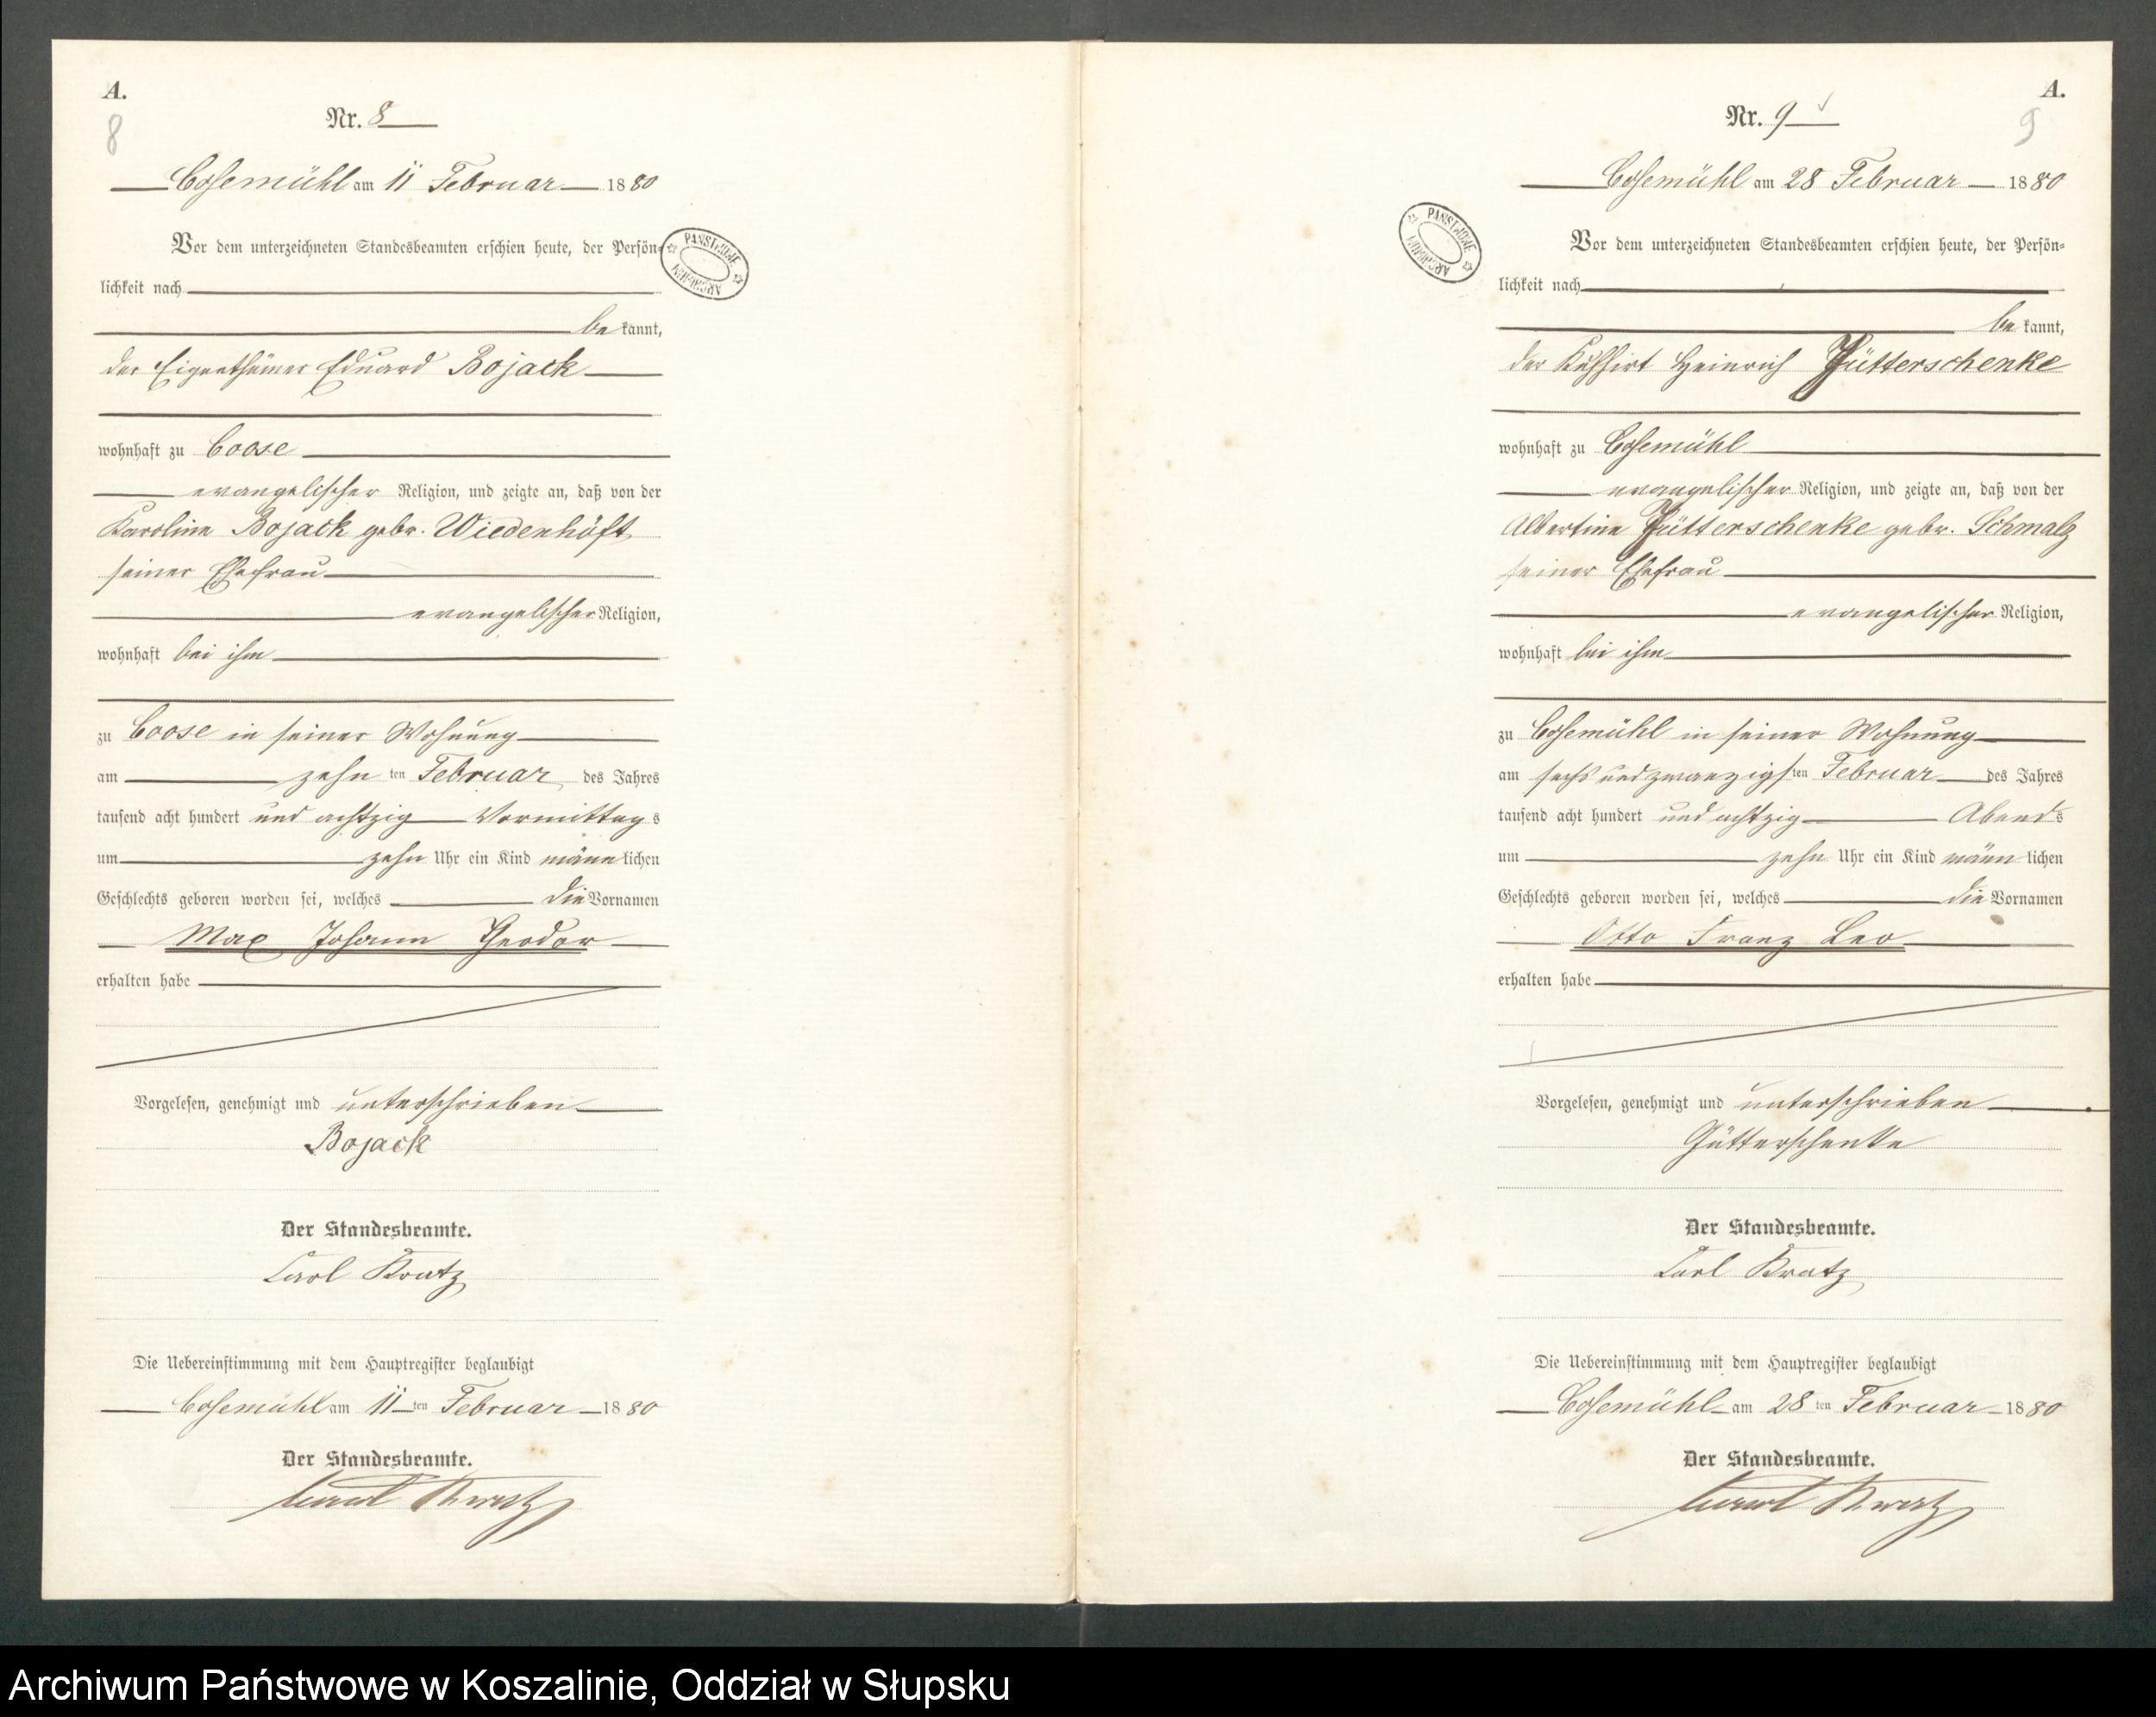 A.
8
Nr. 8
Cosemühl am 11 Februar 1880
Vor dem unterzeichneten Standesbeamten erschien heute, der Persön-
lichkeit nach
be kannt,
der Eigenthümer Eduard Bojack
wohnhaft zu Coose
evangelischer Religion, und zeigte an, daß von der
Karoline Bojack gebr. Wiedenhöft
seiner Ehefrau
evangelischer Religion,
wohnhaft bei ihm
zu Coose in seiner Wohnung
am zehn ten Februar des Jahres
tausend acht hundert und achtzig Vormittags
um zehn Uhr ein Kind männlichen
Geschlechts geboren worden sei, welches die Vornamen
Max Johann Theodor
erhalten habe
Vorgelesen, genehmigt und unterschrieben
Bojack
Der Standesbeamte.
Carl Kratz
Die Uebereinstimmung mit dem Hauptregister beglaubigt
Cosemühl am 11ten Februar 1880
Der Standesbeamte.
Carl Kratz
PAŃSTWOWE ARCHIWUM
A.
9
Nr. 9
Cosemühl am 28 Februar 1880
PAŃSTWOWE ARCHIWUM
Vor dem unterzeichneten Standesbeamten erschien heute, der Persön-
lichkeit nach
be kannt,
der Kuhhirt Heinrich Gütterschenke
wohnhaft zu Cosemühl
evangelischer Religion, und zeigte an, daß von der
Albertine Gütterschenke gebr. Schmalz
seiner Ehefrau
evangelischer Religion,
wohnhaft bei ihm
zu Cosemühl in seiner Wohnung
am sechs und zwanzigsten Februar des Jahres
tausend acht hundert und achtzig Abends
um zehn Uhr ein Kind männlichen
Geschlechts geboren worden sei, welches die Vornamen
Otto Franz Leo
erhalten habe
Vorgelesen, genehmigt und unterschrieben
Gütterschenke
Der Standesbeamte.
Carl Kratz
Die Uebereinstimmung mit dem Hauptregister beglaubigt
Cosemühl am 28 ten Februar 1880
Der Standesbeamte.
Carl Kratz
Archiwum Państwowe w Koszalinie, Oddział w Słupsku